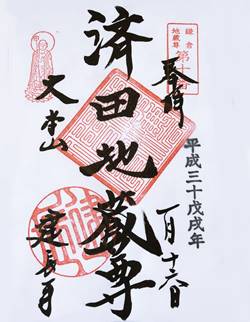 鎌倉
地蔵尊
第十番
奉拝
平成三十戊戌年
一月十六日
済田地蔵尊
大本山
建長寺